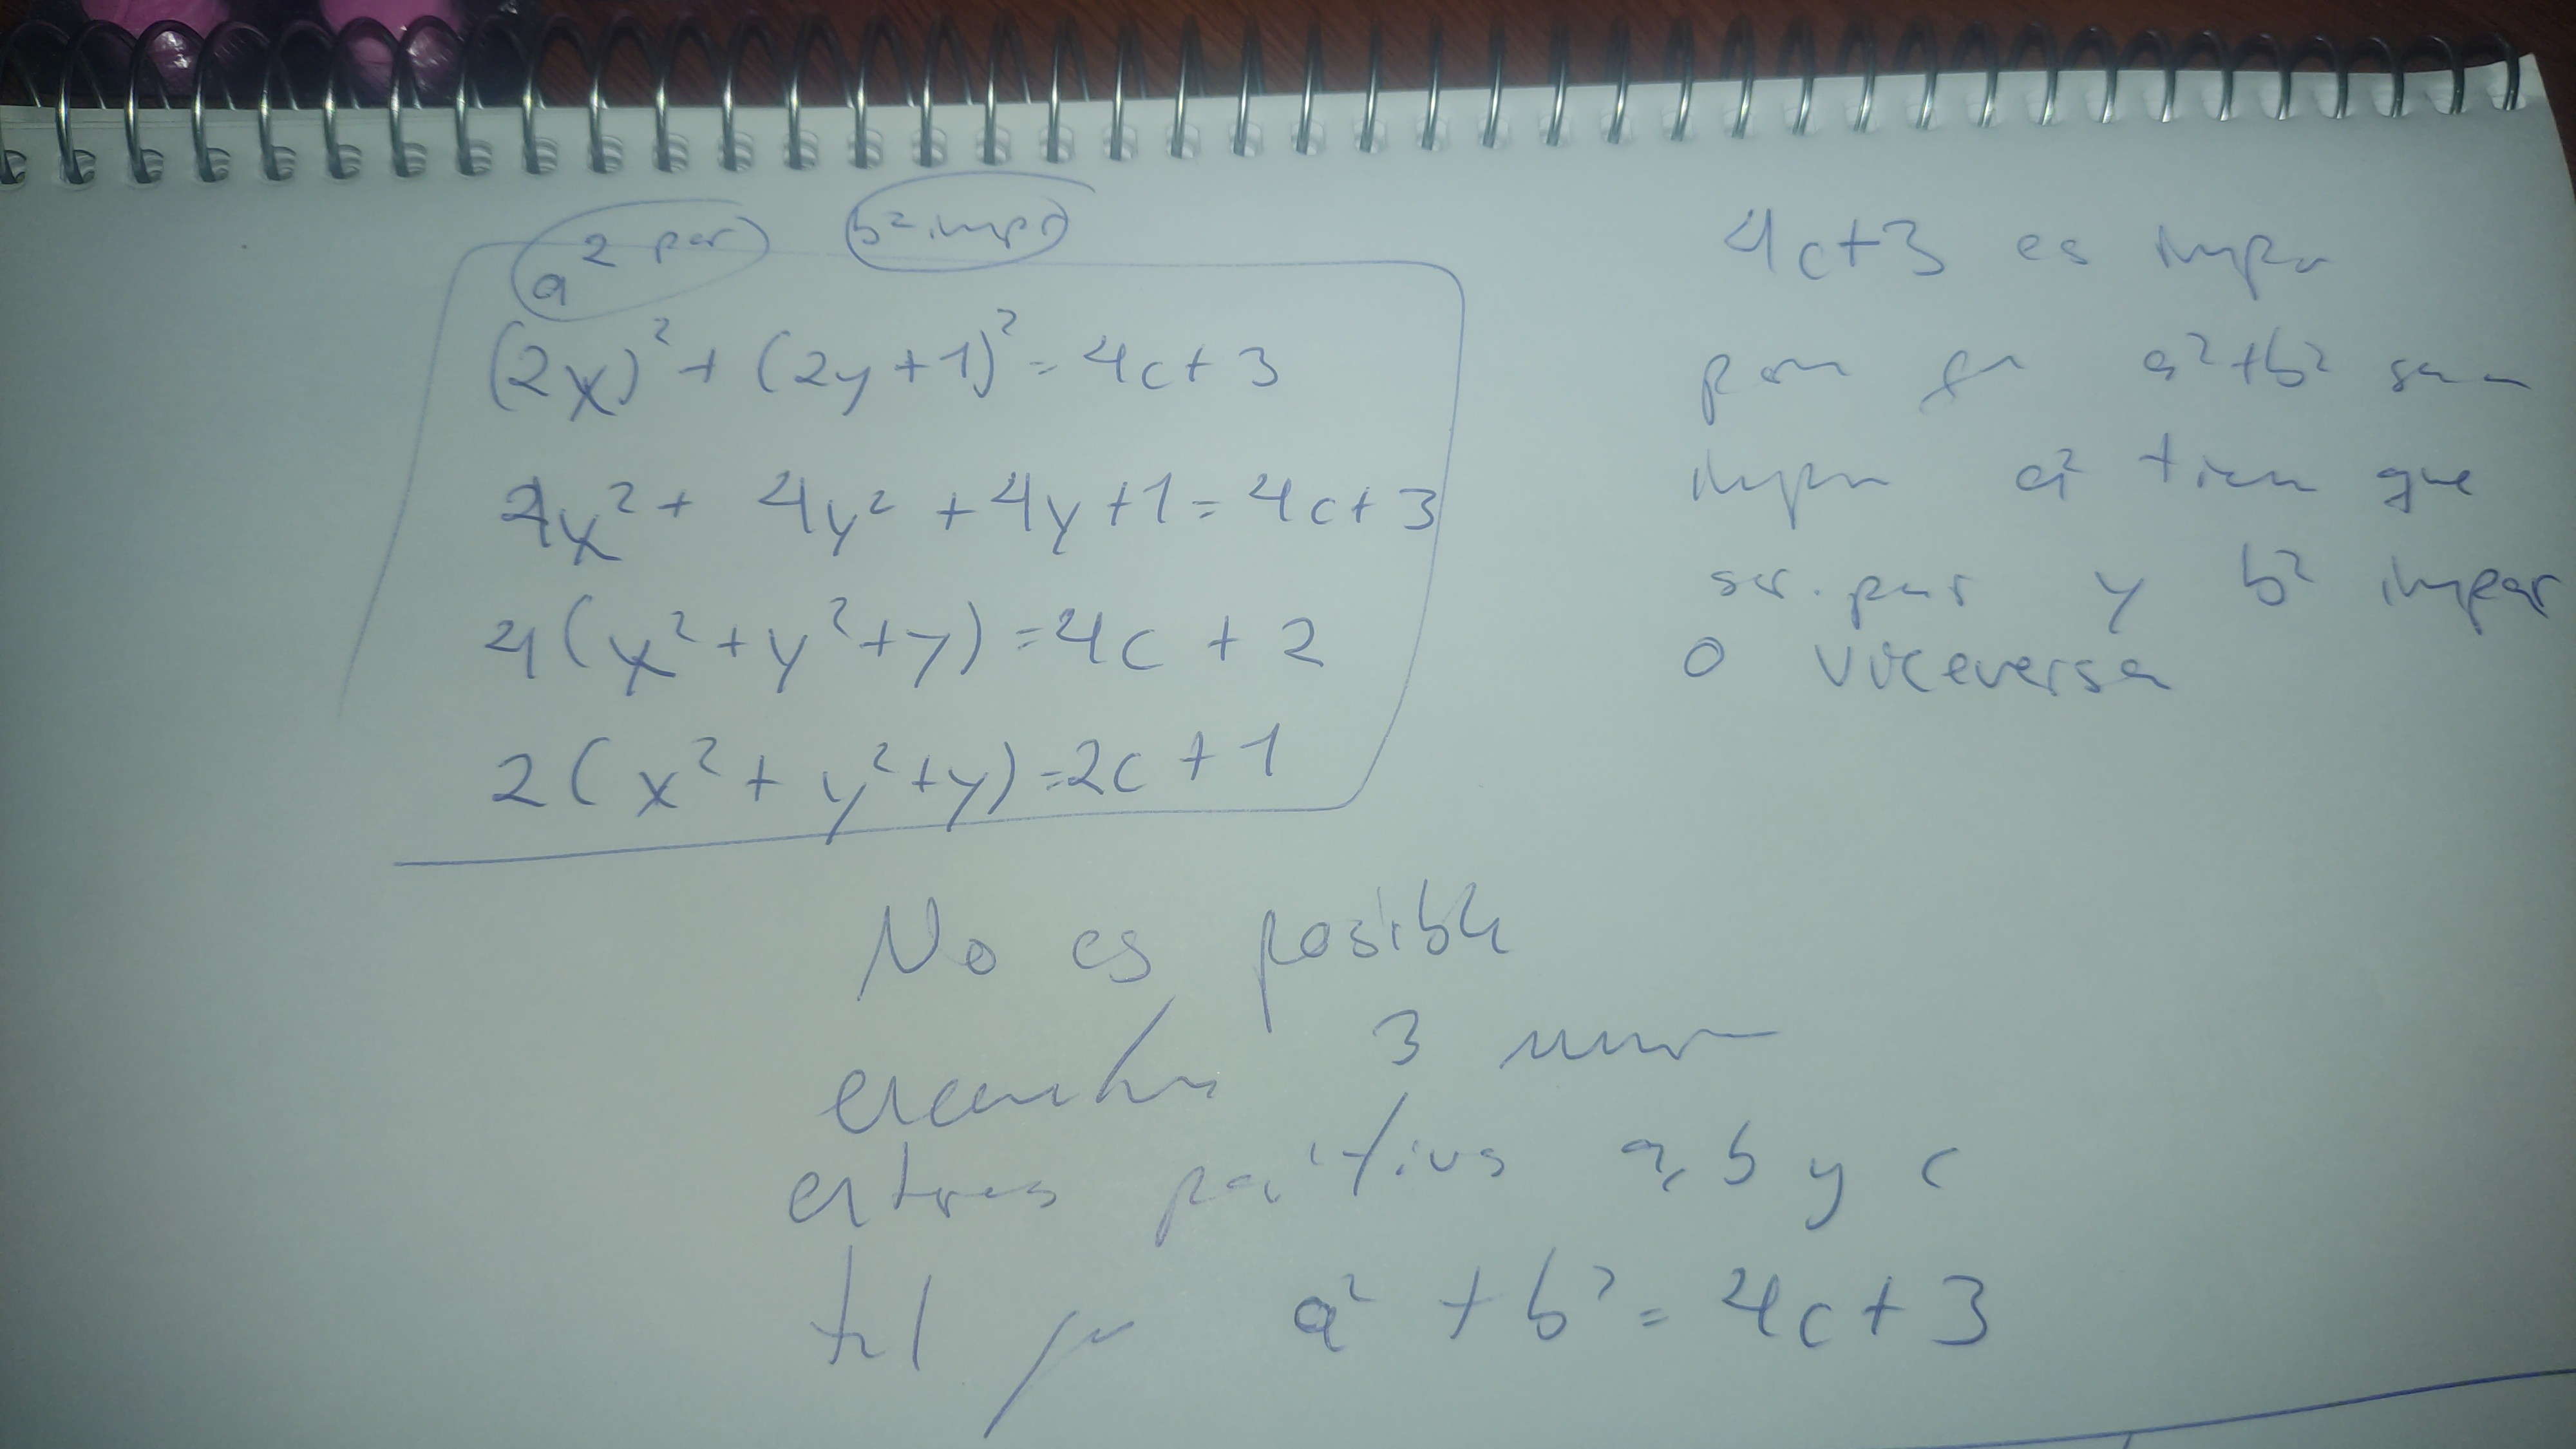 a² par b² impar
(2x)² + (2y+1)² = 4c+3
4x² + 4y² + 4y+1 = 4c+3
4(x²+y²+y) = 4c + 2
2(x² + y²+y) = 2c + 1
4c+3 es impar
para que a²+b² sea
impar a² tiene que
ser par y b² impar
o viceversa
No es posible
encontrar 3 números
enteros positivos a, b y c
tal que a² + b² = 4c+3